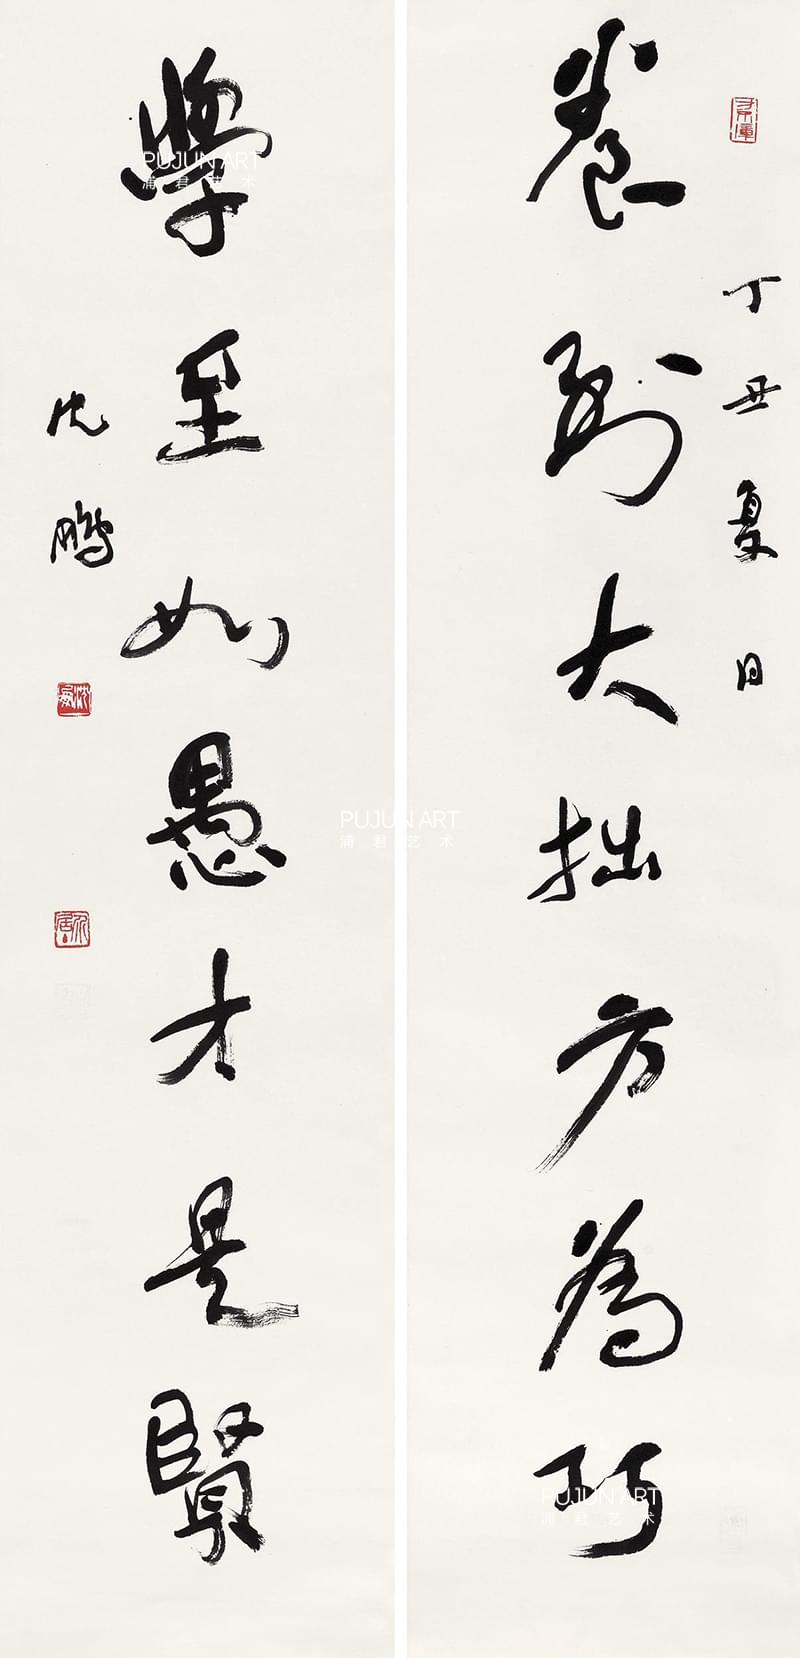 丁丑夏日
養到大拙方為巧
學至如愚才是賢
沈鵬
PUJUN ART
浦君艺术
PUJUN ART
浦君艺术
PUJUN ART
浦君艺术